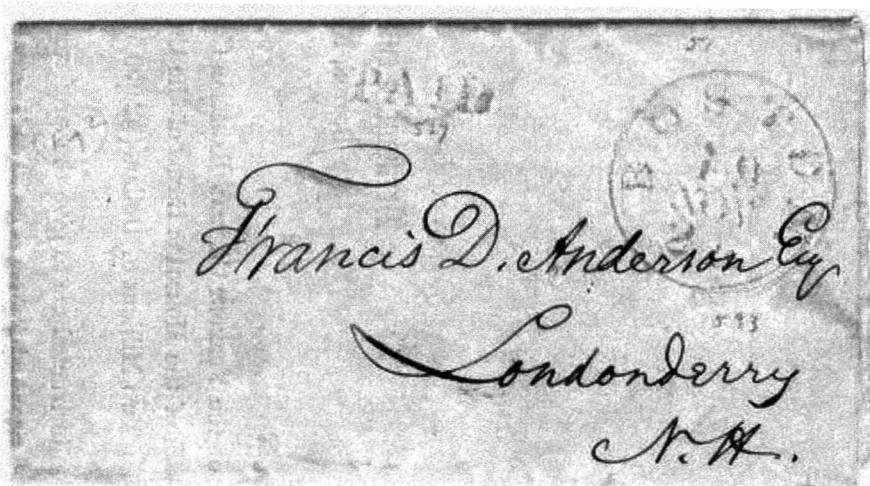 PAID
BOSTO
10
Francis D. Anderson Esq
Londonderry
N. H.
593